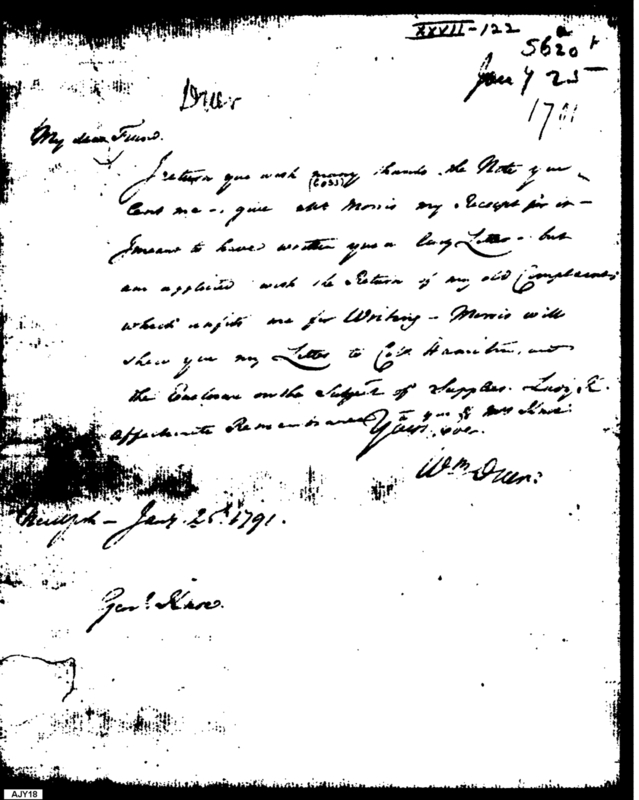 XXVII-122
5620
Jany 25
1791
Duer
My dear Friend.
I return you with many thanks the Note you
(600$)
lent me - give Mr Morris my Receipt for it -
I meant to have written you a long Letter - but
am afflicted with the Return of my old Complaint
which unfits me for Writing - Morris will
shew you my Letter to Col. Hamilton, and
the Enclosure on the Subject of Supplies. Lady K.
affectionate Remembrance to you & Mrs Knox
Yours, ever.
Wm Duer.
Jany. 25th 1791.
Genl. Knox.
AJY18